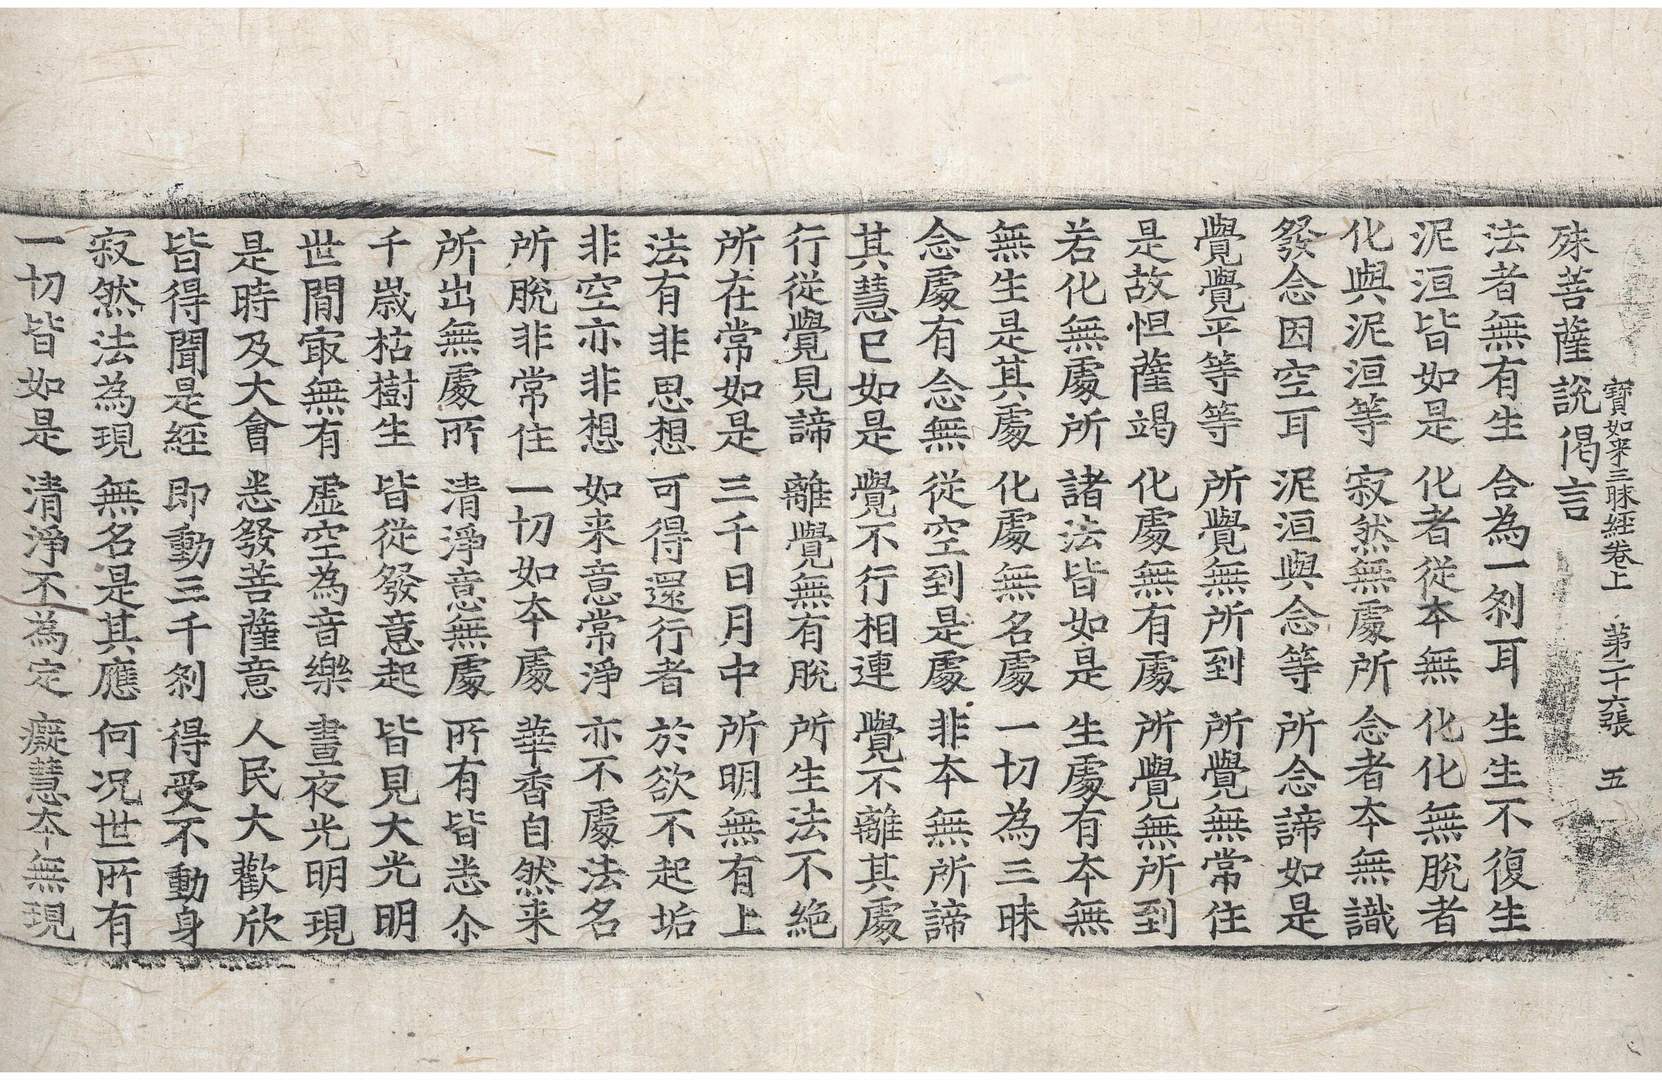 寶如来三昧經卷上　第二十六張　五
殊菩薩說偈言
法者無有生　合為一剎耳　生生不復生
泥洹皆如是　化者從本無　化化無脫者
化與泥洹等　寂然無處所　念者本無識
發念因空耳　泥洹與念等　所念諦如是
覺覺平等等　所覺無所到　所覺無常住
是故怛薩竭　化處無有處　所覺無所到
若化無處所　諸法皆如是　生處有本無
無生是其處　化處無名處　一切為三昧
念處有念無　從空到是處　非本無所諦
其慧已如是　覺不行相連　覺不離其處
行從覺見諦　離覺無有脫　所生法不絶
所在常如是　三千日月中　所明無有上
法有非思想　可得還行者　於欲不起垢
非空亦非想　如来意常淨　亦不處法名
所脫非常住　一切如本處　華香自然来
所出無處所　清淨意無處　所有皆悉尒
千歲枯樹生　皆從發意起　皆見大光明
世間㝡無有　虛空為音樂　晝夜光明現
是時及大會　悉發菩薩意　人民大歡欣
皆得聞是經　即動三千剎　得受不動身
寂然法為現　無名是其應　何况世所有
一切皆如是　清淨不為定　癡慧本無現